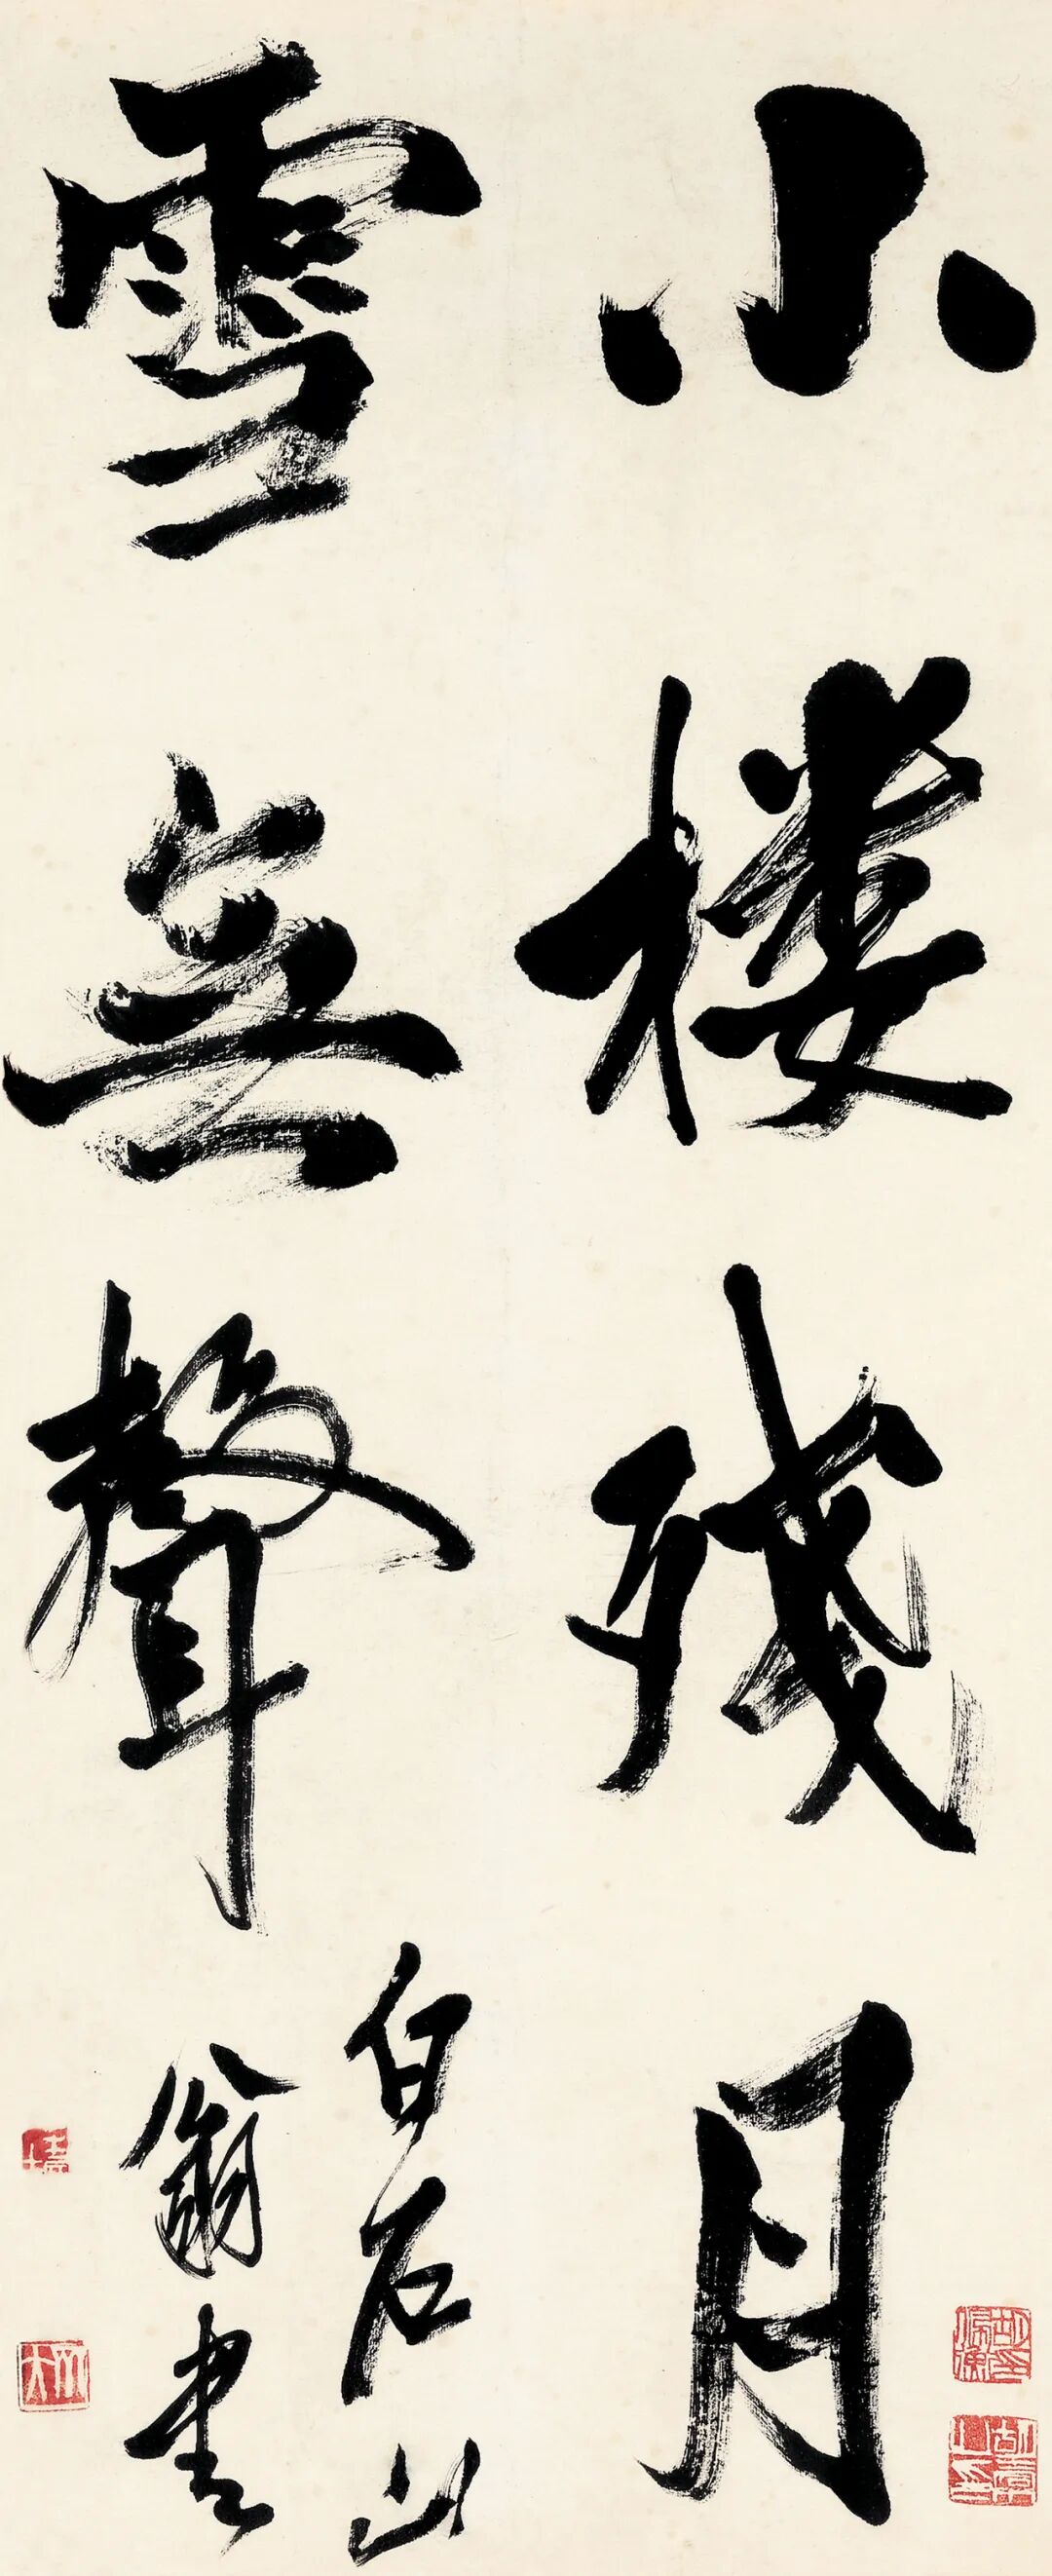 小楼残月
雪無聲
白石山
翁書